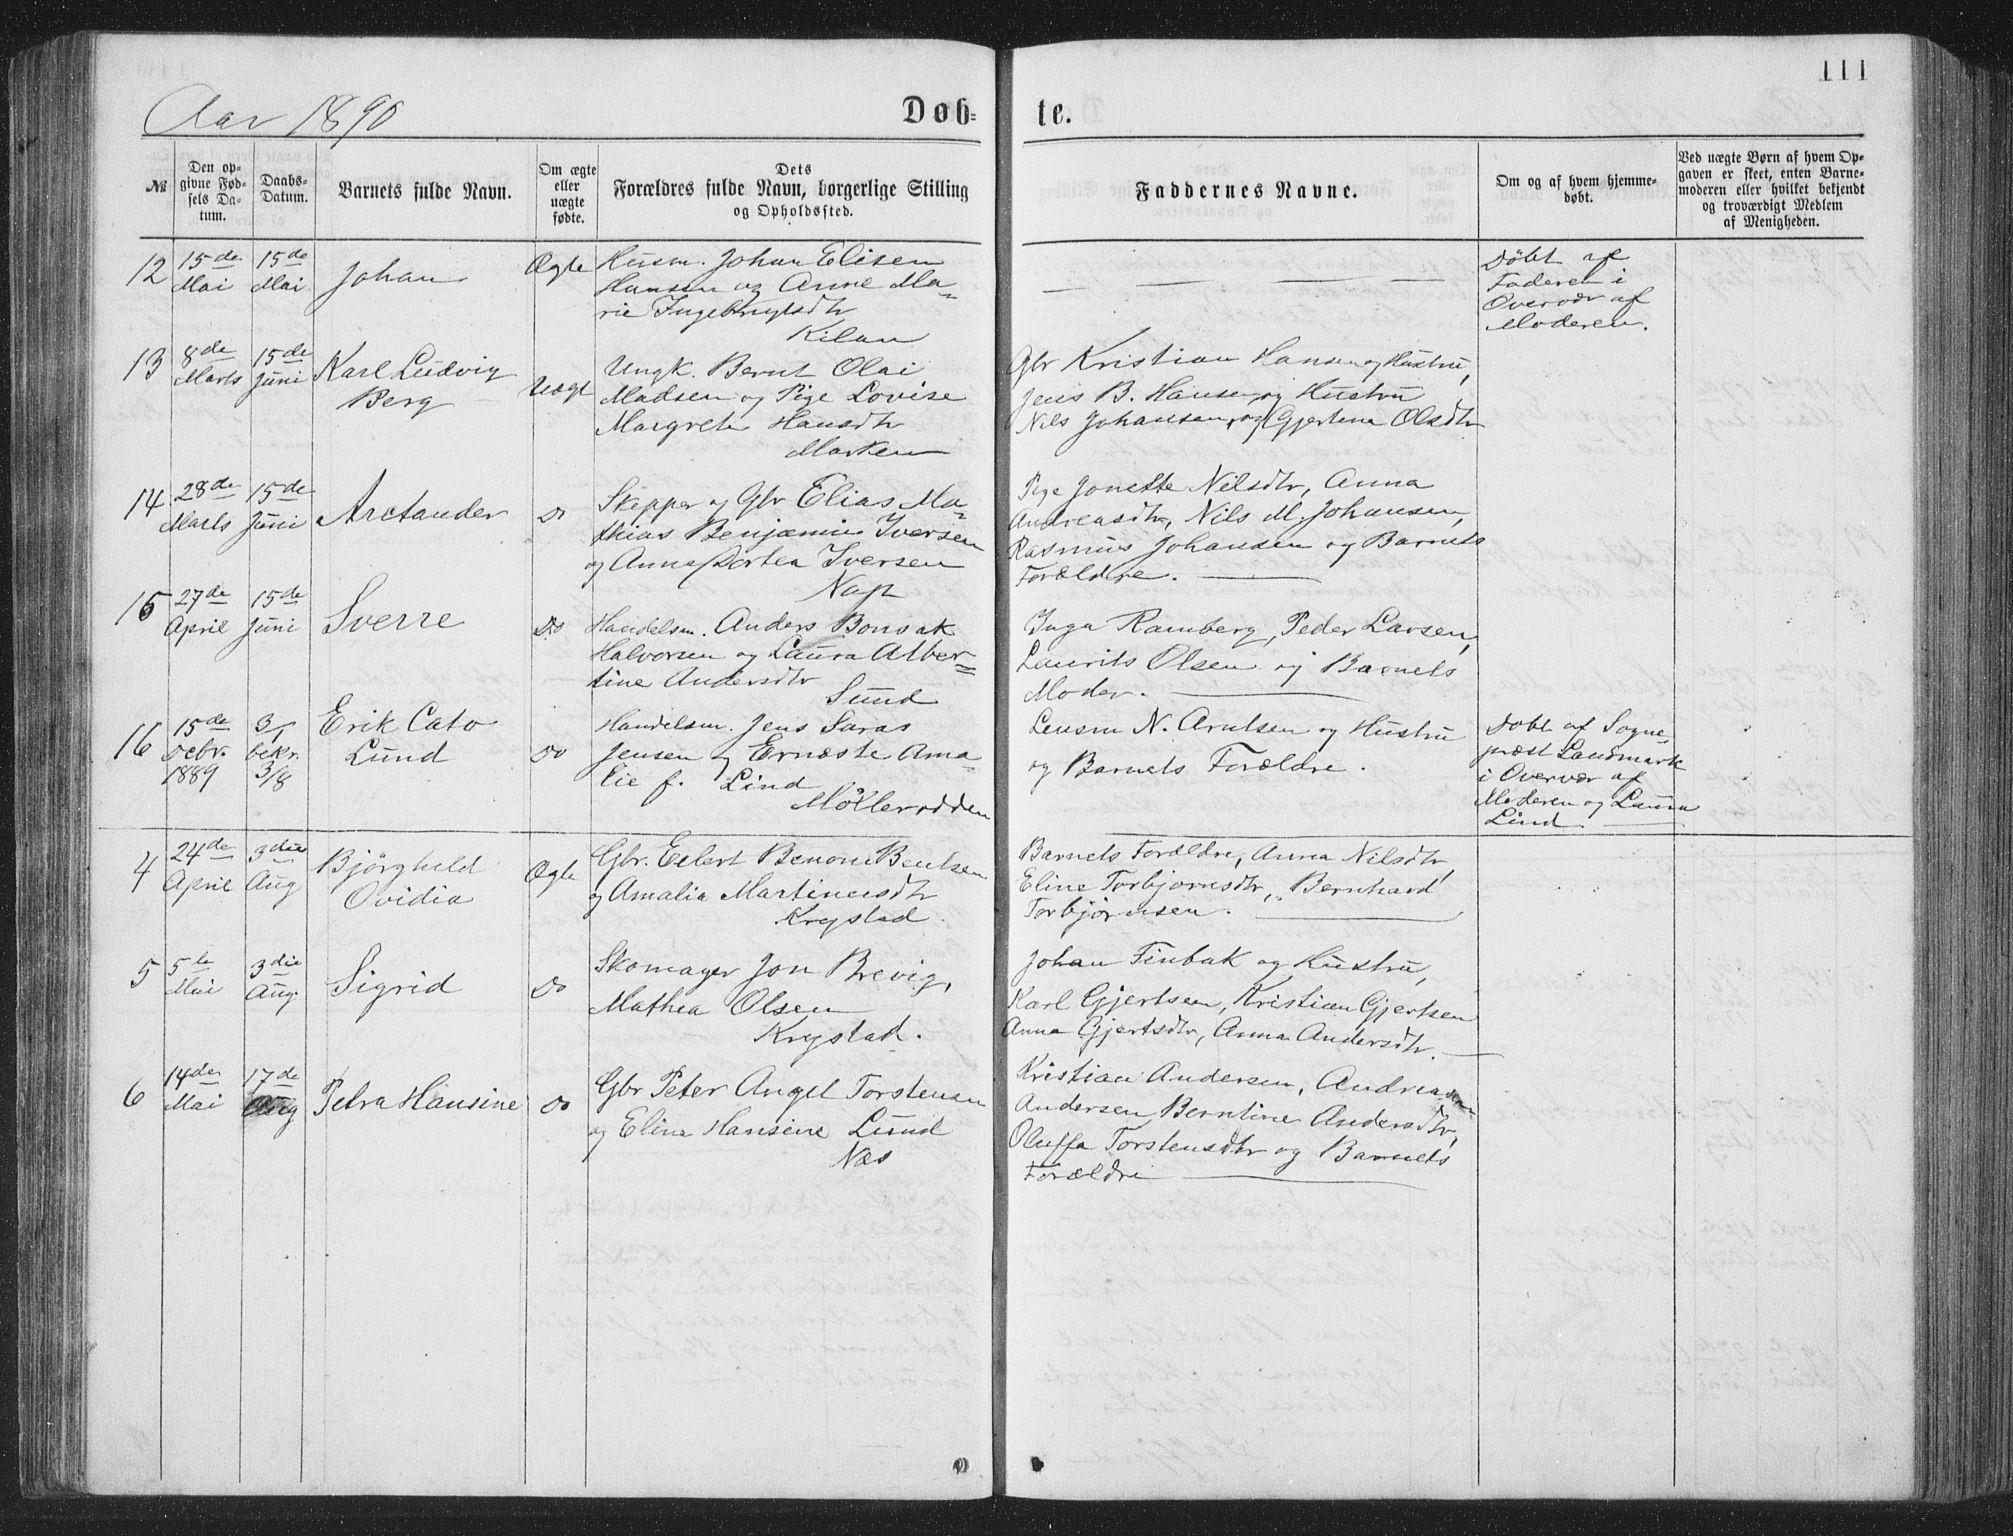 111
Aar 1890
Døb-
te.
№
Den op-
givne Fød-
sels Da-
tum.
Daabs-
Datum.
Barnets fulde Navn.
Om ægte
eller
uægte
fødte.
Dets
Forældres fulde Navn, borgerlige Stilling
og Opholdssted.
Faddernes Navne.
Om og af hvem hjemme-
døbt.
Ved uægte Børn af hvem Op-
gaven er skeet, enten Barne-
moderen eller hvilket bekjendt
og troværdigt Medlem
af Menigheden.
12
15de
Mai
15de
Mai.
Johan
Ægte
Husm. Johan Elisen
Hansen og Anne Ma-
rie Ingebrigtsdtr
Kilan
Döbt af
Faderen i
Overvær af
Moderen.
13
8de
Marts
15de
Juni
Karl Ludvig
Berg
Uægt
Ungk. Bernt Olai
Madsen og Pige Lovise
Margrete Hansdtr
Marken
Gbr Kristian Hansen og Hustru,
Jens B. Hansen og Hustru
Nils Johansen, og Gjertina Olsdtr
14
28de
Marts
15de
Juni
Arctander
Do
Skipper og Gbr Elias Ma-
thias Benjamin Iversen
og Anna Dortea Iversen
Nap
Pige Jonette Nilsdtr, Anna
Andreasdtr, Nils M. Johansen,
Rasmus Johansen og Barnets
Forældre.
15
27de
April
15de
Juni
Sverre
Do
Handelsm. Anders Bonsak
Halvorsen og Laura Alber-
tine Andersdtr
Sund
Inga Ramberg, Peder Larsen,
Laurits Olsen og Barnets
Moder.
16
15de
Debr.
1889
3/1
bekr.
3/8
Erik Cato
Lund
Do
Handelsm. Jens Saras
Jensen og Ernæste Ama-
lie f. Lind
Möllerodden
Lensm N. Arntsen og Hustru
og Barnets Forældre.
Döbt af Sogne-
præst Landmark
i Overvær af
Moderen og Laura
Lind
4
24de
April
3die
Aug
Bjørghild
Ovidia
Ægte
Gbr. Eilert Benoni Bentsen
og Amalia Martinusdtr
Krystad
Barnets Forældre, Anna Nilsdtr,
Eline Torbjørnsdtr, Bernhard
Torbjørnsen.
5
5te
Mai
3die
Aug.
Sigrid
Do
Skomager Jon Brevig,
Mathea Olsen
Krystad.
Johan Finbak og Hustru,
Karl Gjertsen, Kristian Gjertsen
Anna Gjertsdtr, Anna Andersdtr.
6
14de
Mai
17de
Aug
Petra Hansine
Do
Gbr Peter Angel Torstensen
og Eline Hansine Lund
Næs
Kristian Andersen, Andreas
Andersen Berntine Andersdtr,
Oluffa Torstensdtr og Barnets
Forældre